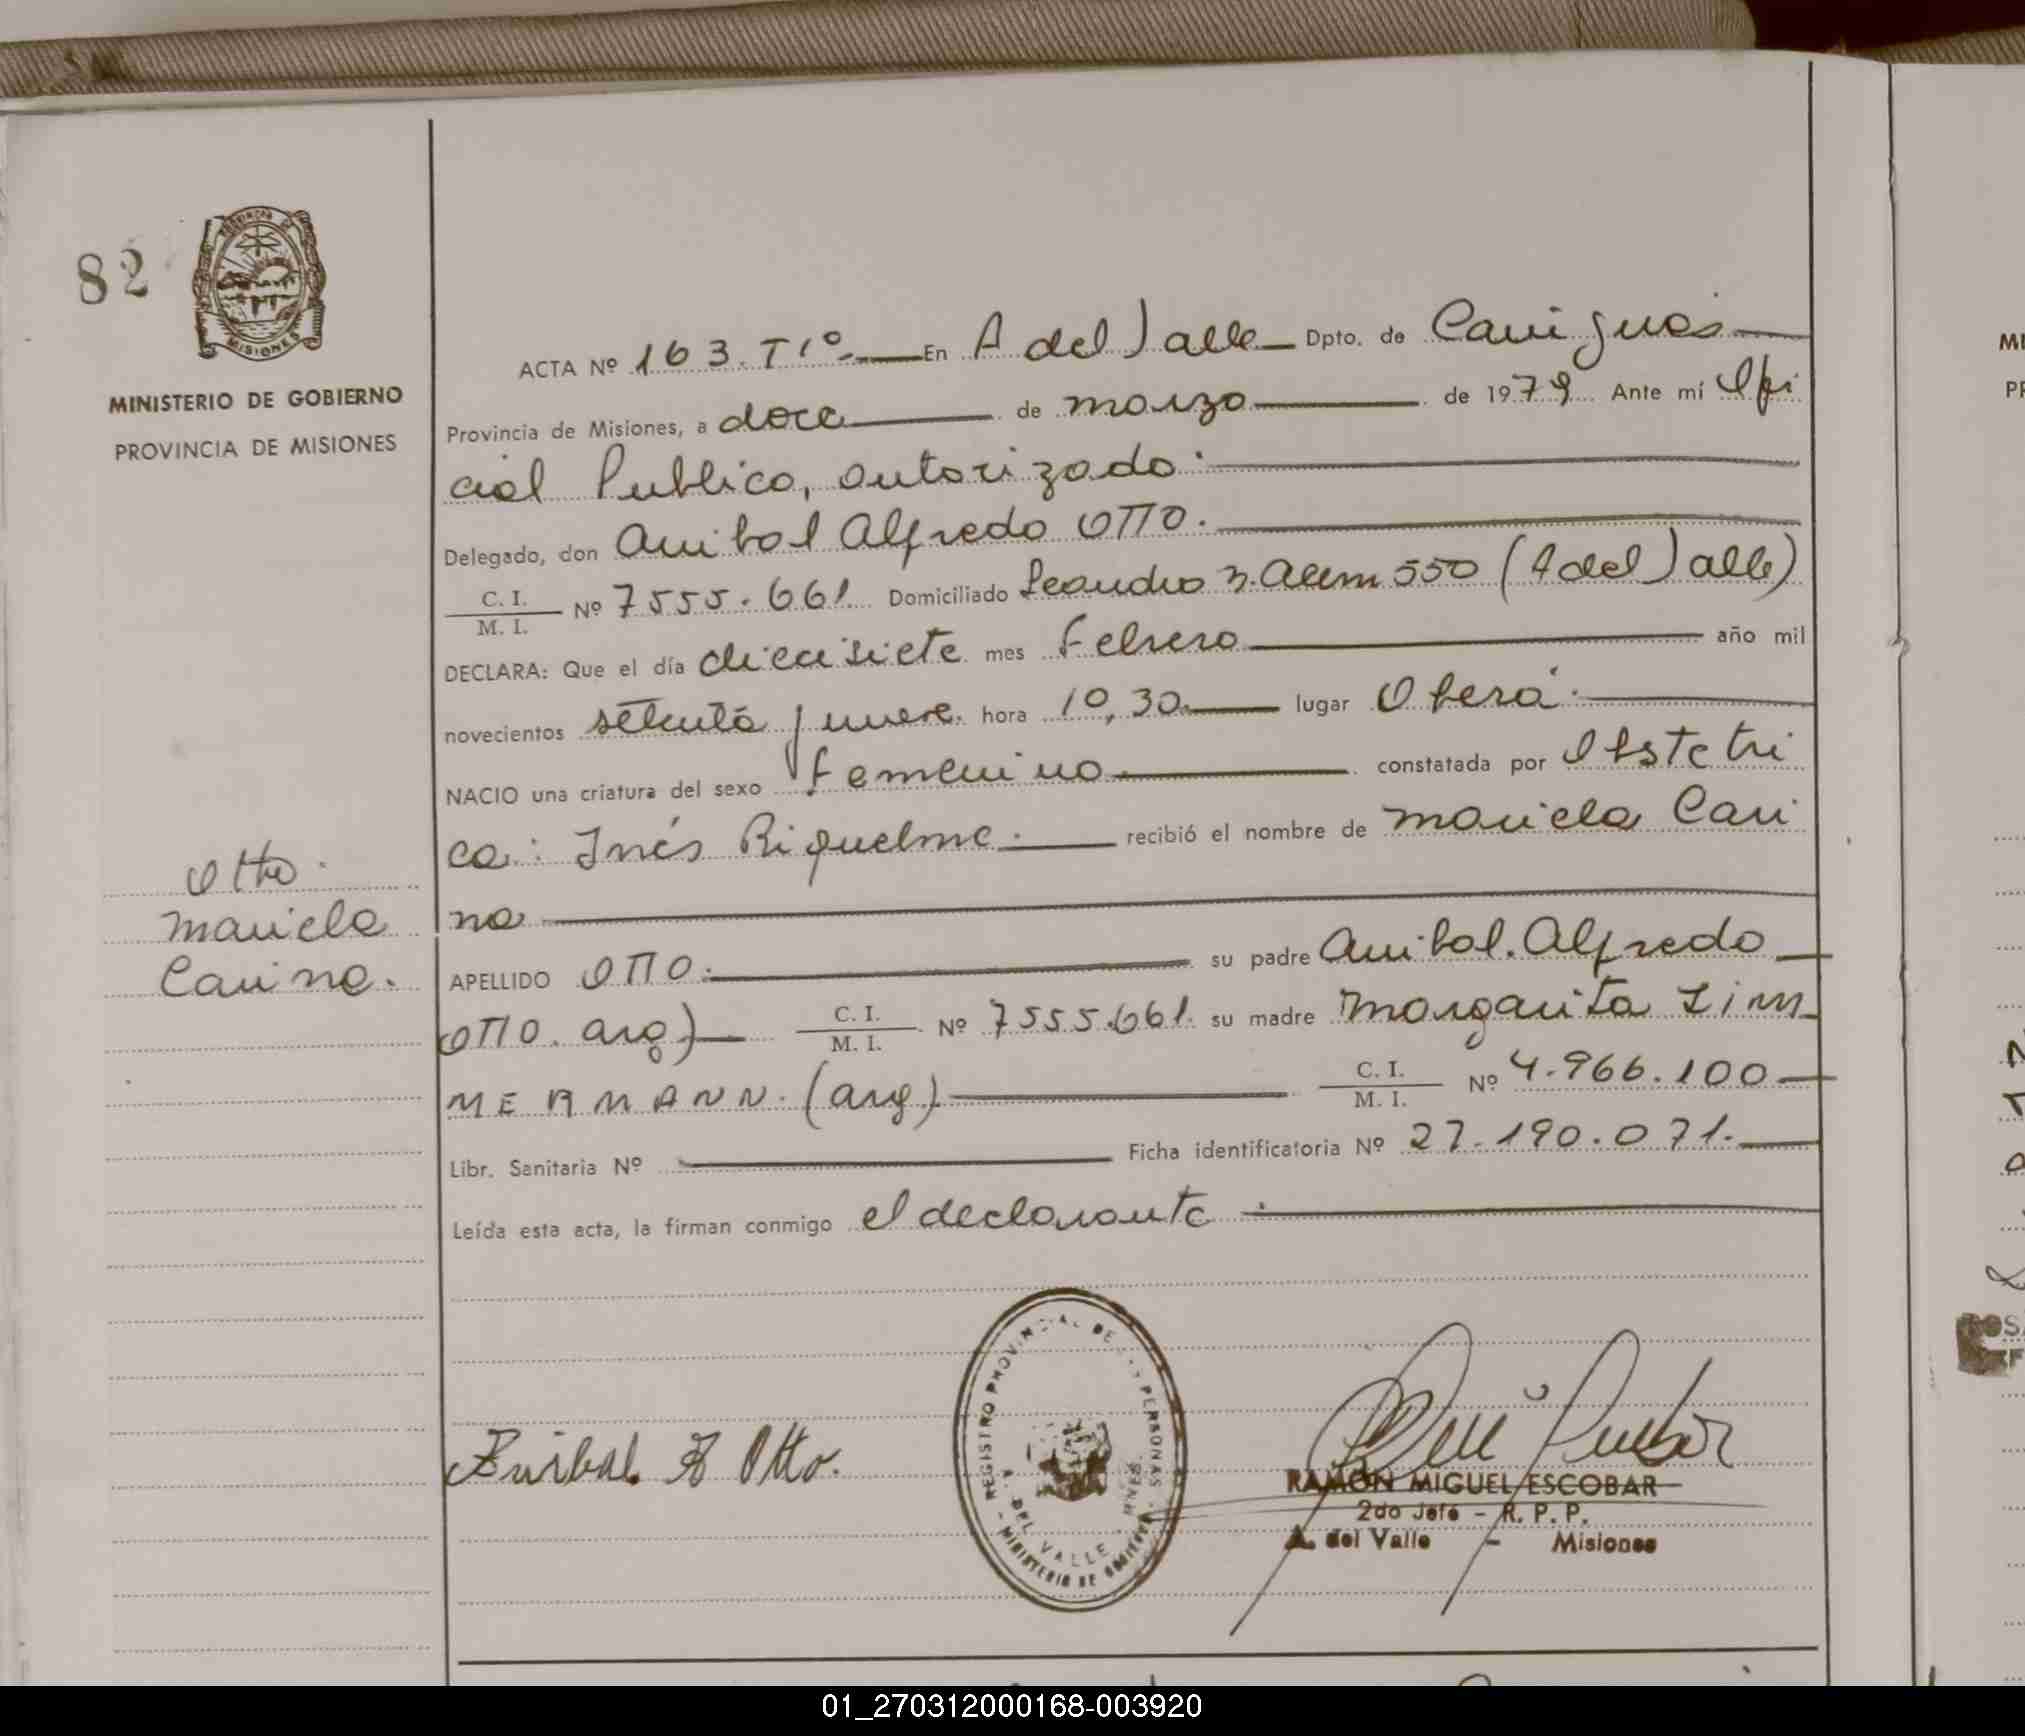 82
MISIONES
MINISTERIO DE GOBIERNO
PROVINCIA DE MISIONES
Otto.
Mariela
Carina.
ACTA Nº 163. T1º. En A del Valle Dpto. de Cainguás
Provincia de Misiones, a doce de marzo de 1979 Ante mí Ofi
cial Publico, autorizado.
Delegado, don Anibal Alfredo OTTO.
C. I.
M. I.
Nº 7555.661. Domiciliado Leandro N. Alem 550 (A del Valle)
DECLARA: Que el día diecisiete mes Febrero año mil
novecientos setenta y nueve. hora 10,30 lugar Oberá.
NACIO una criatura del sexo femenino constatada por Obstetri
ca: Inés Riquelme. recibió el nombre de Mariela Cari
na
APELLIDO OTTO. su padre Anibal. Alfredo
OTTO. arg) C. I. Nº 7555.661. su madre Margarita Zim
M. I.
MERMANN. (arg) C. I. Nº 4.966.100
M. I.
Libr. Sanitaria Nº Ficha identificatoria Nº 27.190.071.
Leída esta acta, la firman conmigo el declarante.
REGISTRO PROVINCIAL DE PERSONAS
A. DEL VALLE
MINISTERIO DE GOBIERNO
Anibal A Otto.
RAMÓN MIGUEL ESCOBAR
2do Jefe - R. P. P.
A. del Valle - Misiones
01_270312000168-003920